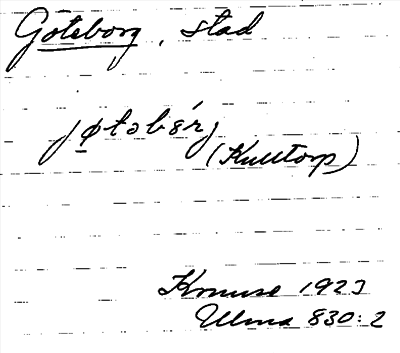 Göteborg, stad
jøtəbärj
(Kulltorp)
Krouse 1923
Ulma 830:2